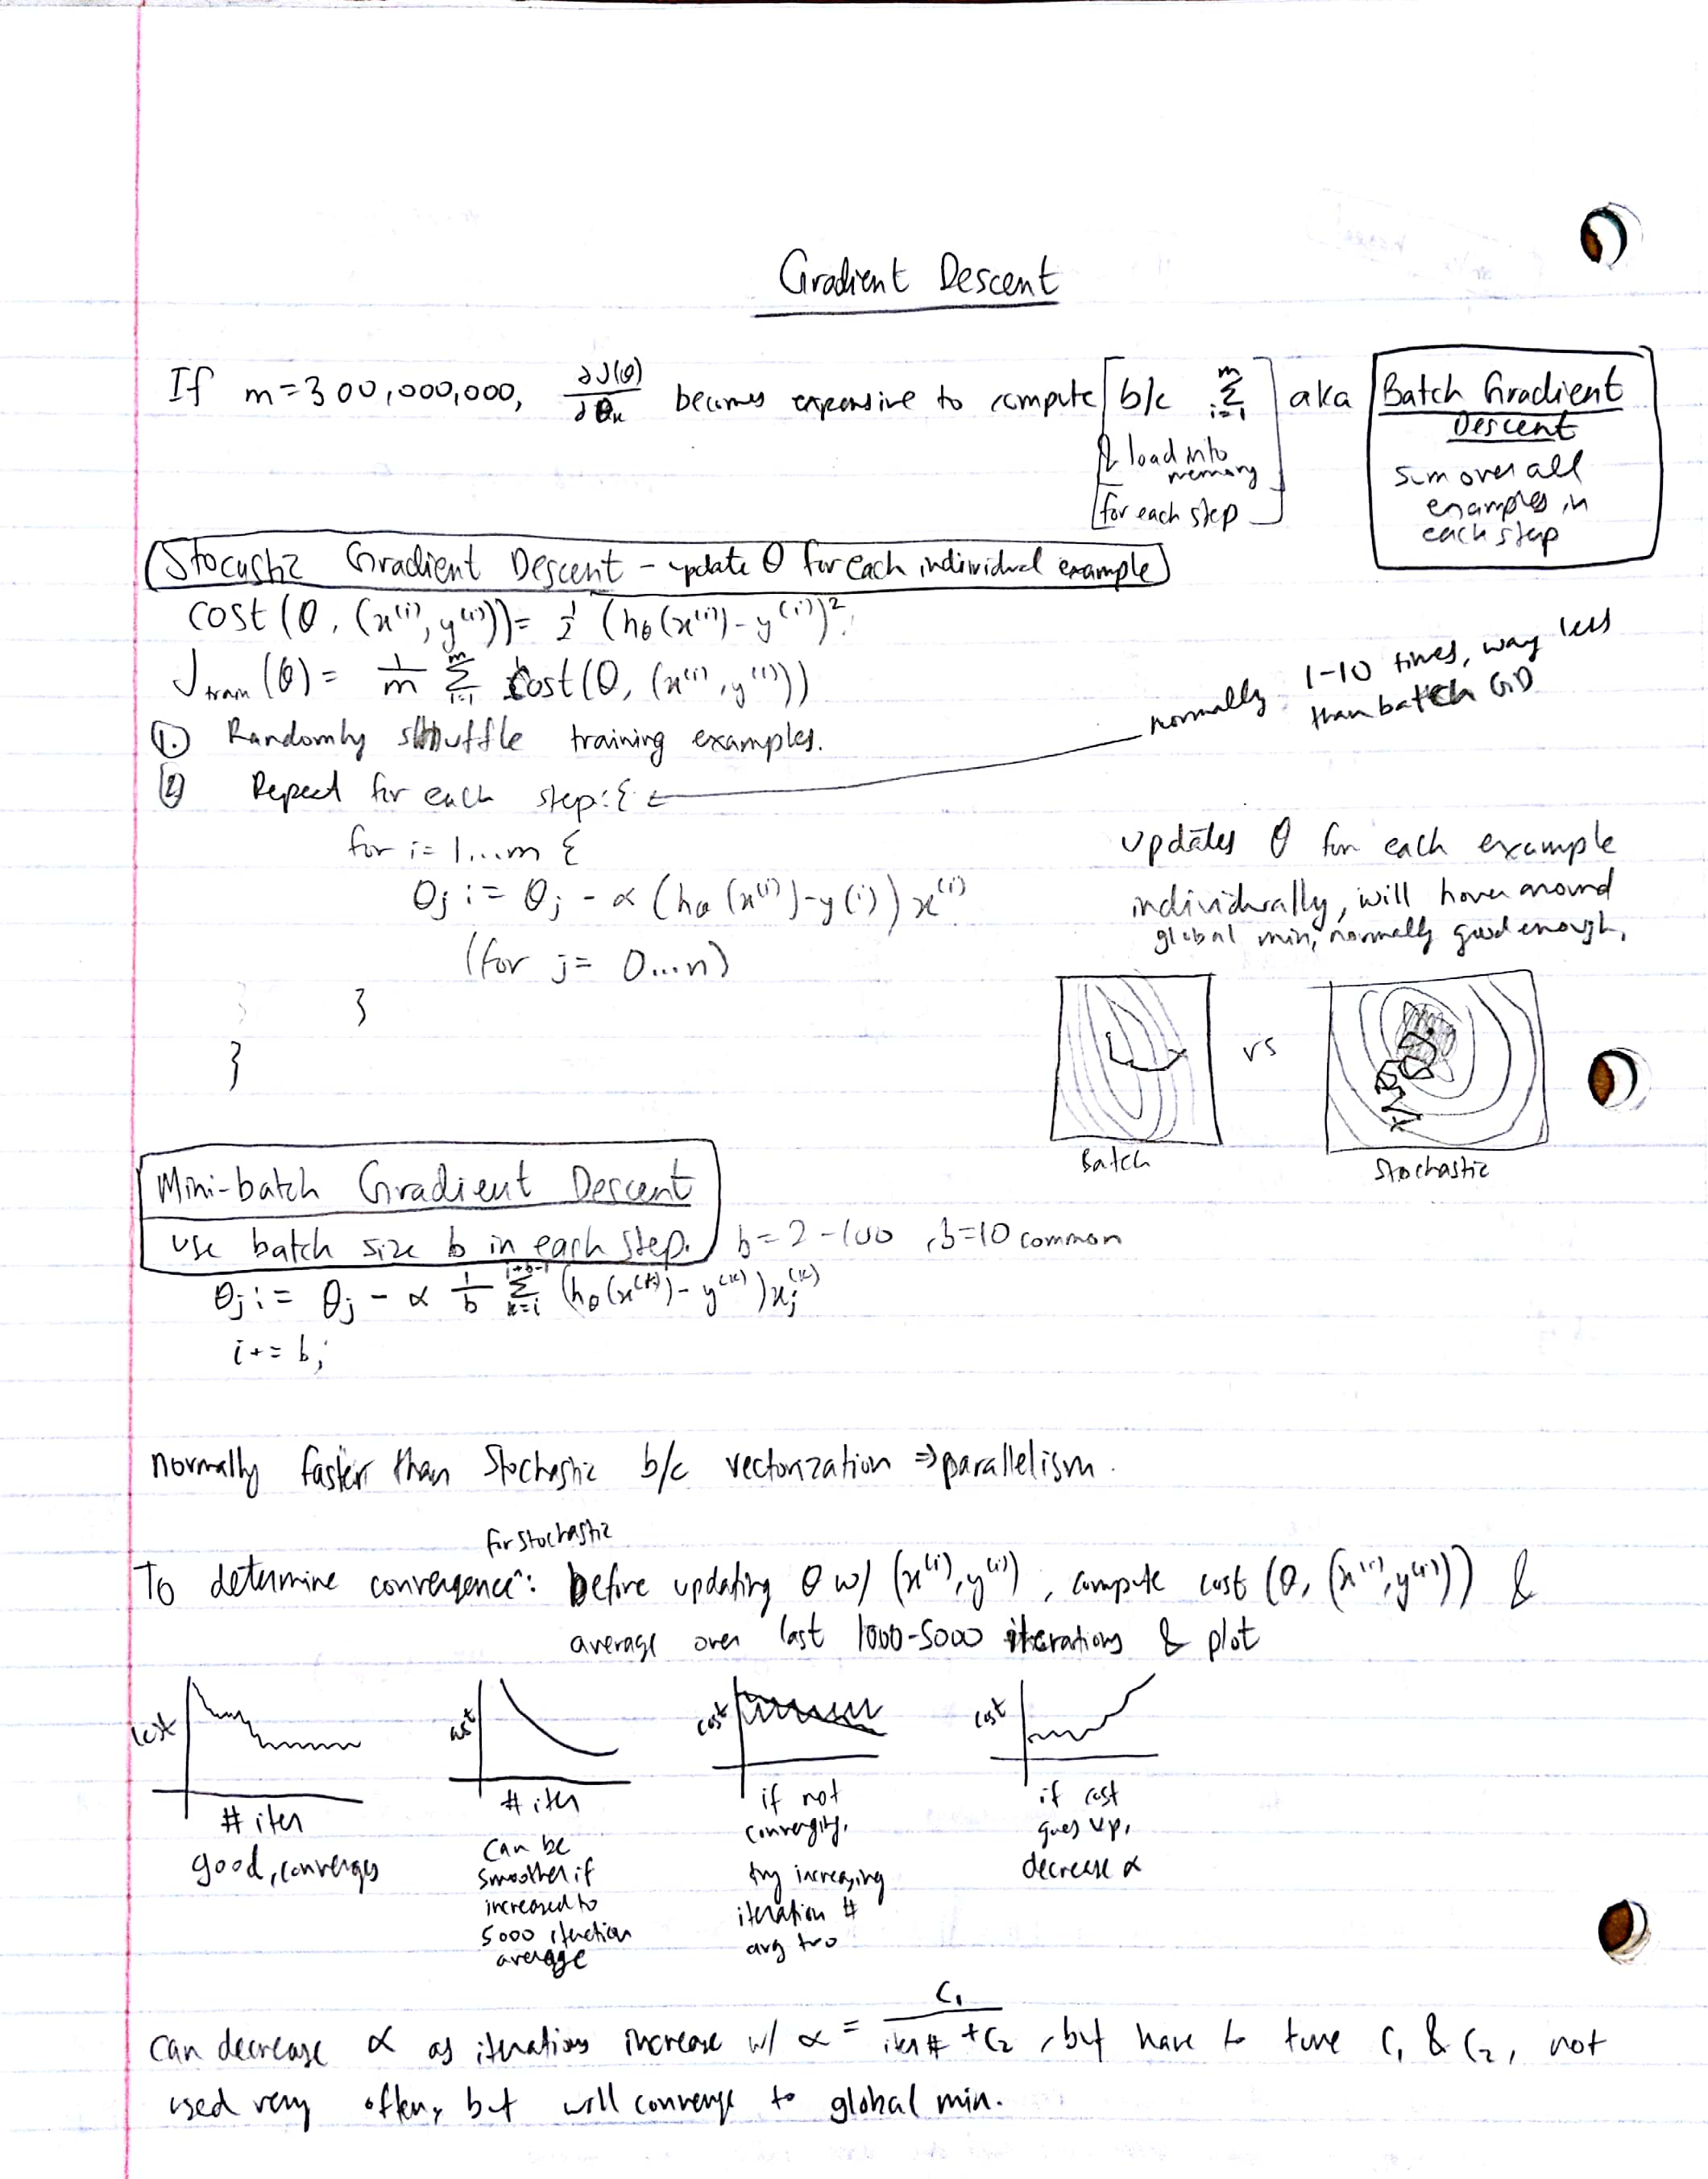 Gradient Descent
If m=300,000,000, ∂J(θ)/∂θₖ becomes expensive to compute [b/c Σ_{i=1}^{m}] aka
& load into
memory
for each step
Batch Gradient
Descent
sum over all
examples in
each step
Stocastic Gradient Descent - update θ for each individual example
cost(θ, (x⁽ⁱ⁾, y⁽ⁱ⁾)) = 1/2 (hθ(x⁽ⁱ⁾) - y⁽ⁱ⁾)².
J_train(θ) = 1/m Σ_{i=1}^{m} cost(θ, (x⁽ⁱ⁾, y⁽ⁱ⁾))
1. Randomly shuffle training examples.
2 Repeat for each step: {
normally 1-10 times, way less
than batch GD
for i= 1...m {
θj := θj - α (hθ(x⁽ⁱ⁾) - y(i)) x⁽ⁱ⁾
(for j= 0...n)
}
}
updates θ for each example
individually, will hover around
global min, normally good enough.
vs
Batch
Stochastic
Mini-batch Gradient Descent
use batch size b in each step.
b=2-100, b=10 common
θj := θj - α 1/b Σ_{k=i}^{i+b-1} (hθ(x⁽ᵏ⁾) - y⁽ᵏ⁾) xj⁽ᵏ⁾
i += b;
normally faster than Stochastic b/c vectorization ⇒ parallelism.
for stochastic
To determine convergence^: before updating θ w/ (x⁽ⁱ⁾, y⁽ⁱ⁾), compute cost (θ, (x⁽ⁱ⁾, y⁽ⁱ⁾)) &
average over last 1000-5000 iterations & plot
cost
# iter
good, converges
cost
# iter
Can be
smoother if
increased to
5000 iteration
average
cost
if not
converging,
try increasing
iteration #
avg too
cost
if cost
goes up,
decrease α
can decrease α as iterations increase w/ α = C₁/(iter# + C₂), but have to tune C₁ & C₂, not
used very often, but will converge to global min.